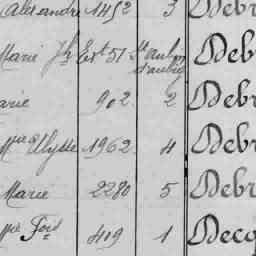 Alexandre 1452 3 Deb
Marie Jh Ext 51 St Aubin Deb
St aubin
arie 902 2 Deb
Mie Ulysse 1962 4 Deb
Marie 2280 5 Deb
Fois 419 1 Decq